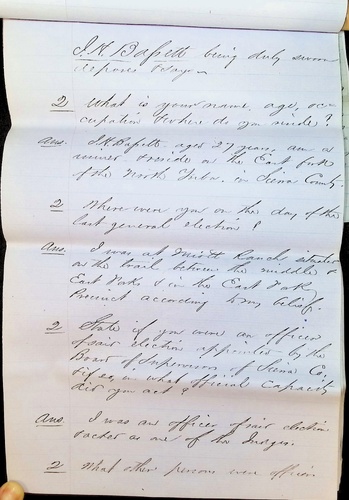 J. H. Bassett being duly sworn
deposes & says
Q What is your name, age, oc-
cupation & where do you reside?
Ans. J. H. Bassett aged 27 years, am a
miner & reside on the East fork
of the North Yuba, in Sierra County.
Q Where were you on the day of the
last general election?
Ans. I was at Ranch, situated
on the trail between the middle &
East Forks & in the East Fork
Precinct according to my belief.
Q State if you were an officer
of said election appointed by the
Board of Supervisors of Sierra Co.
& if so, in what official capacity
did you act?
Ans. I was an officer of said election
& acted as one of the Judges.
Q What other persons were officers